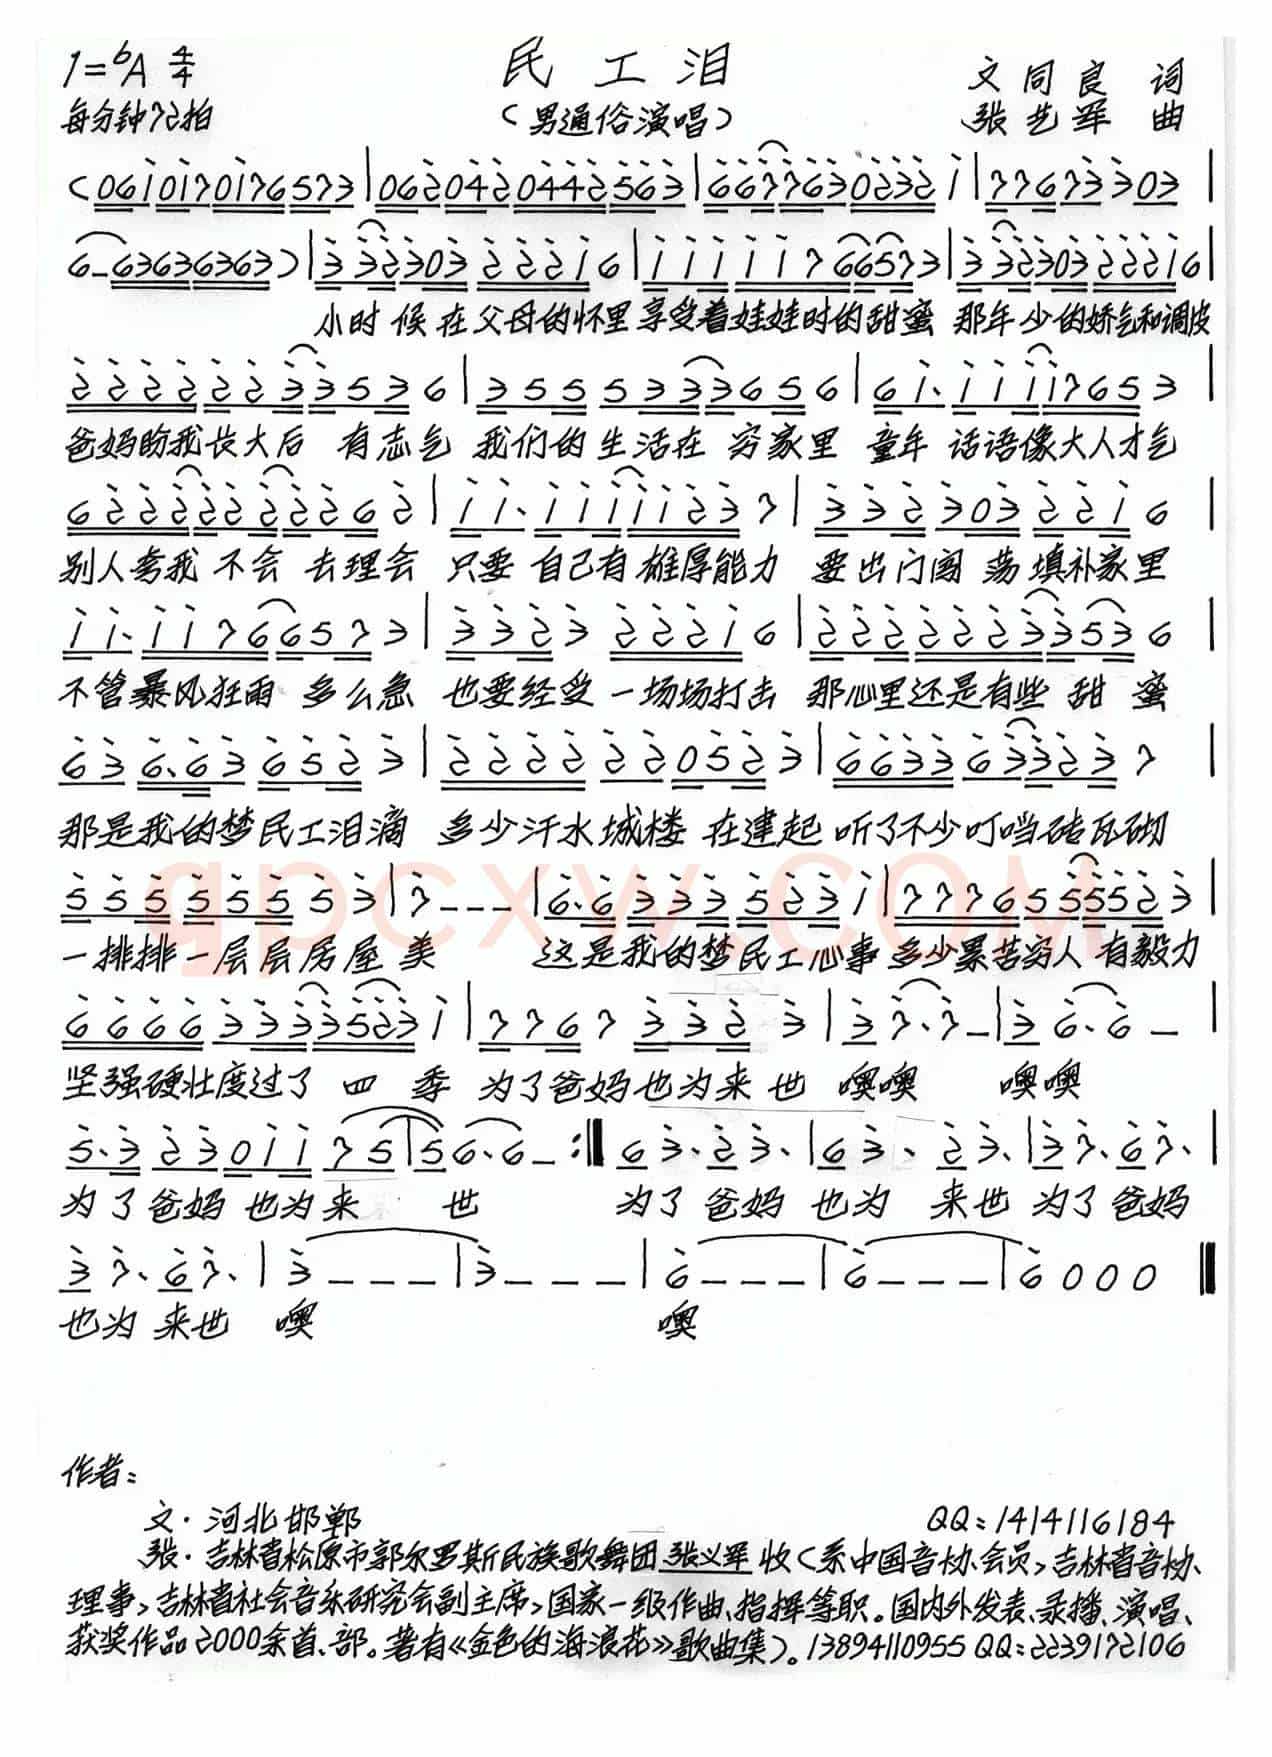 1=♭A 4/4
民工泪
文同良 词
每分钟72拍
(男通俗演唱)
张艺军 曲
(0610170176573|0620420442563|66776302321|77673303|
6-63636363)|33230322216|11111766573|33230322216|
小时候在父母的怀里享受着娃娃时的甜蜜 那年少的娇气和调皮
22222233536|3555333656|61·11117653|
爸妈盼我长大后 有志气 我们的生活在 穷家里 童年 话语像大人才气
62222222262|11·111112237|3323032216|
别人考我 不会 去理会 只要 自己有雄厚能力 要出门闯荡填补家里
11·11766573|332322216|22222233536|
不管暴风狂雨 多么急 也要经受一场场打击 那心里还是有些 甜 蜜
636·636523|2222220523|6633633237|
那是我的梦民工泪滴 多少汗水城楼 在建起 听了不少叮当砖瓦砌
55555553|7---|6·63335231|77765555523|
一排排一层层房屋美 这是我的梦民工心事 多少累苦穷人 有毅力
666633335231|77673323|37·7-|36·6-|
坚强硬壮度过了 四 季 为了爸妈也为来世 噢噢 噢噢
5·32301175|56·6-:‖63·23·|63·23·|37·67·|
为了爸妈 也为来 世 为了爸妈 也为 来世 为了爸妈
37·67·|3---|3---|6---|6---|6000‖
也为 来世 噢 噢
作者:
文·河北邯郸 QQ:1414116184
张·吉林省松原市郭尔罗斯民族歌舞团张义军收(系中国音协会员,吉林省音协
理事,吉林省社会音乐研究会副主席,国家一级作曲、指挥等职。国内外发表、录播、演唱、
获奖作品2000余首、部。著有《金色的海浪花》歌曲集)。13894110955 QQ:2239172106
qpcxw.com